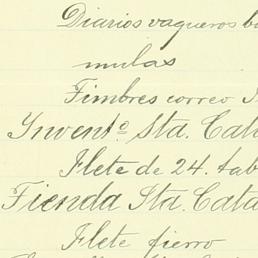 Diarios vaqueros bu
mulas
Timbres correo
Invent.º Sta. Cata
Flete de 24. tab
Tienda Sta. Cata
Flete fierro